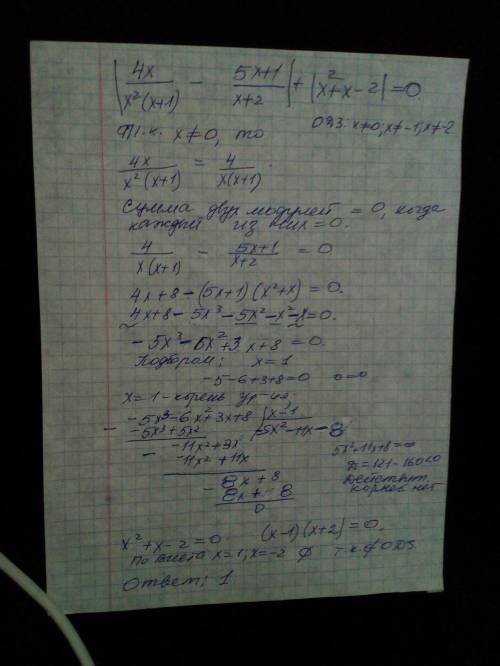 |4x/(x²(x+1)) - (5x+1)/(x+2)| + |x²+x-2| = 0
ОДЗ: x≠0; x≠-1; x≠-2
Т.к. x≠0, то
4x/(x²(x+1)) = 4/(x(x+1)).
Сумма двух модулей = 0, когда
каждый из них = 0.
4/(x(x+1)) - (5x+1)/(x+2) = 0
4x+8-(5x+1)(x²+x) = 0.
4x+8-5x³-5x²-x²-x=0.
-5x³-6x²+3x+8=0.
Подбором: x=1
-5-6+3+8=0 0=0
x=1-корень ур-ия;
-5x³-6x²+3x+8 | x-1
-5x³+5x² | -5x²-11x-8
-11x²+3x
-11x²+11x
-8x+8
-8x+8
0
5x²+11x+8=0
D=121-160<0
Действит.
корней нет
x²+x-2=0 (x-1)(x+2)=0.
По Виета x=1; x=-2 ∅ т.к. ∉ ОДЗ.
Ответ: 1